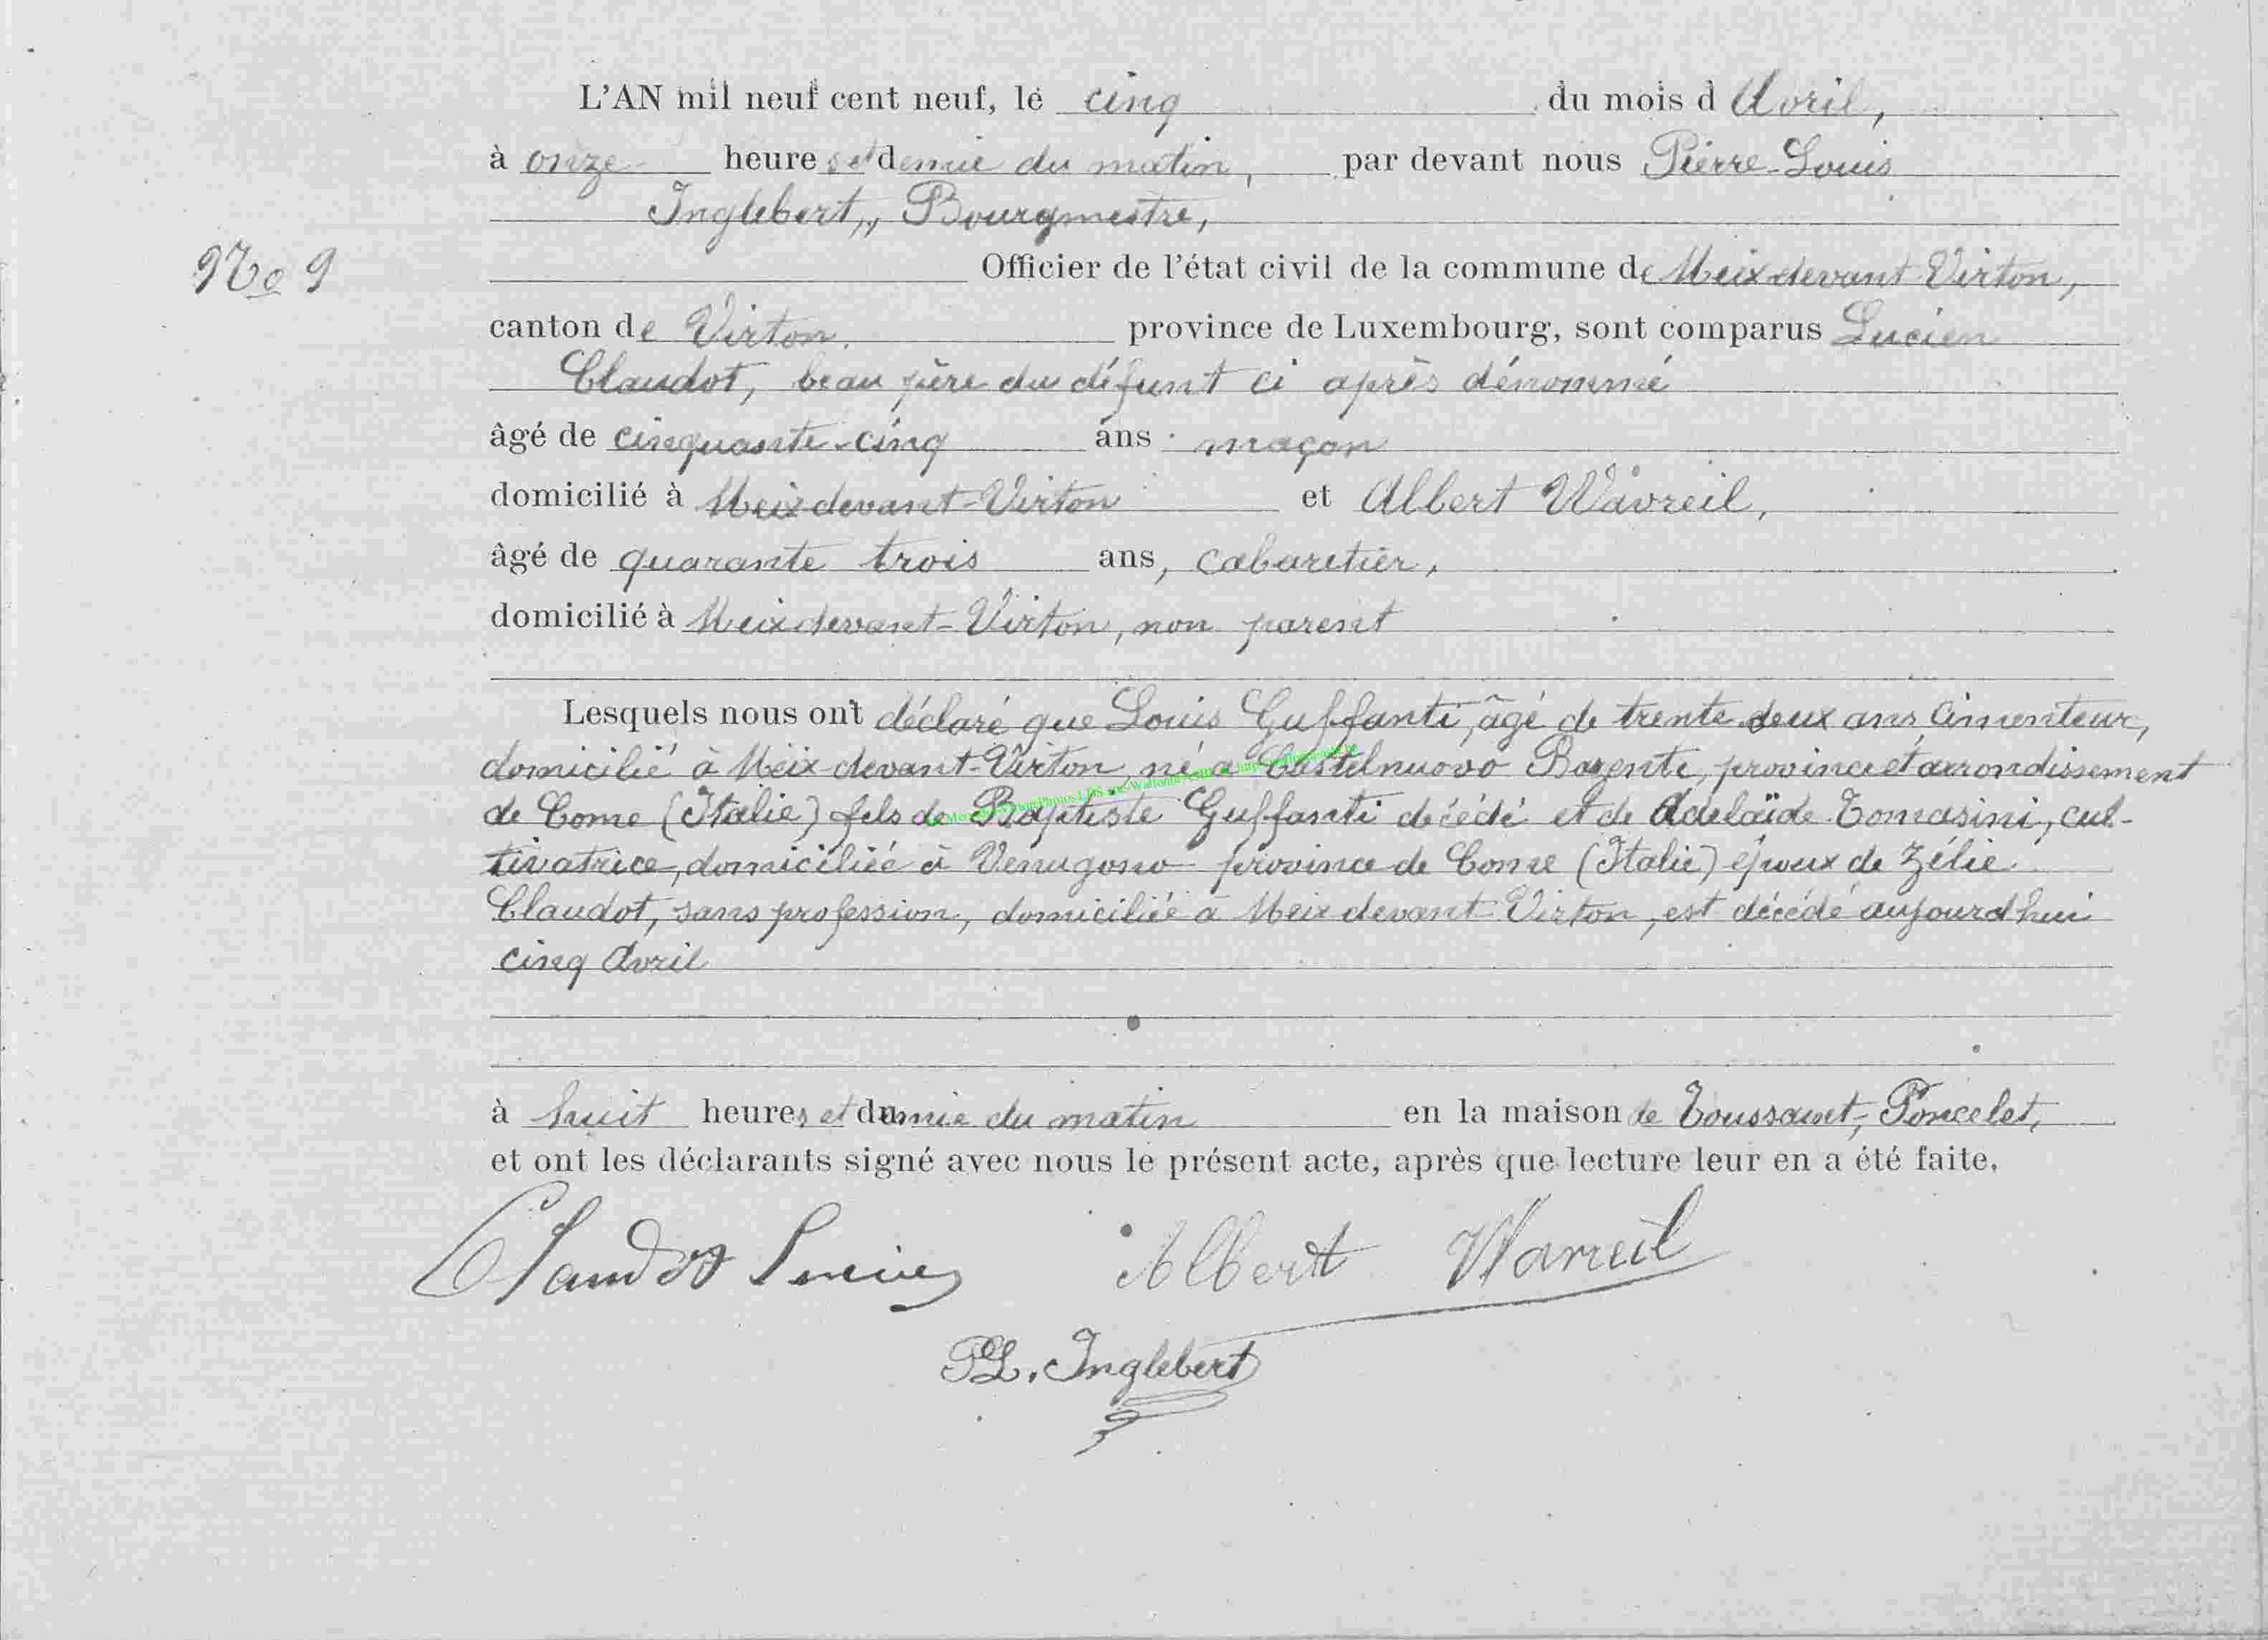 L'AN mil neuf cent neuf, le cinq du mois d Avril,
à onze heures et demie du matin, par devant nous Pierre-Louis
Inglebert,, Bourgmestre,
No 9
Officier de l'état civil de la commune de Meix devant Virton,
canton de Virton. province de Luxembourg, sont comparus Lucien
Claudot, beau père du défunt ci après dénommé
âgé de cinquante-cinq ans maçon
domicilié à Meix devant-Virton et Albert Wavreil,
âgé de quarante trois ans, cabaretier,
domicilié à Meix devant-Virton, non parent
Lesquels nous ont déclaré que Louis Guffanti, âgé de trente deux ans, cimenteur,
domicilié à Meix-devant-Virton, né à Castelnuovo Bozente, province et arrondissement
de Come (Italie) fils de Baptiste Guffanti décédé et de Adelaïde Tomasini, cul-
tivatrice, domiciliée à Venugono province de Come (Italie) époux de Zélie
Claudot, sans profession, domiciliée à Meix devant Virton, est décédé aujourd'hui
cinq Avril
à huit heures et demie du matin en la maison de Toussaint-Poncelet,
et ont les déclarants signé avec nous le présent acte, après que lecture leur en a été faite.
Claudot Lucien Albert Wavreil
PL. Inglebert